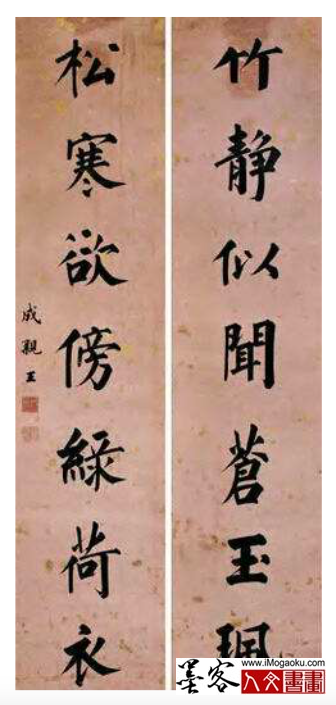 竹静似聞蒼玉珮
松寒欲傍綠荷衣
成親王
墨客 www.iMogaoku.com
人文書畫